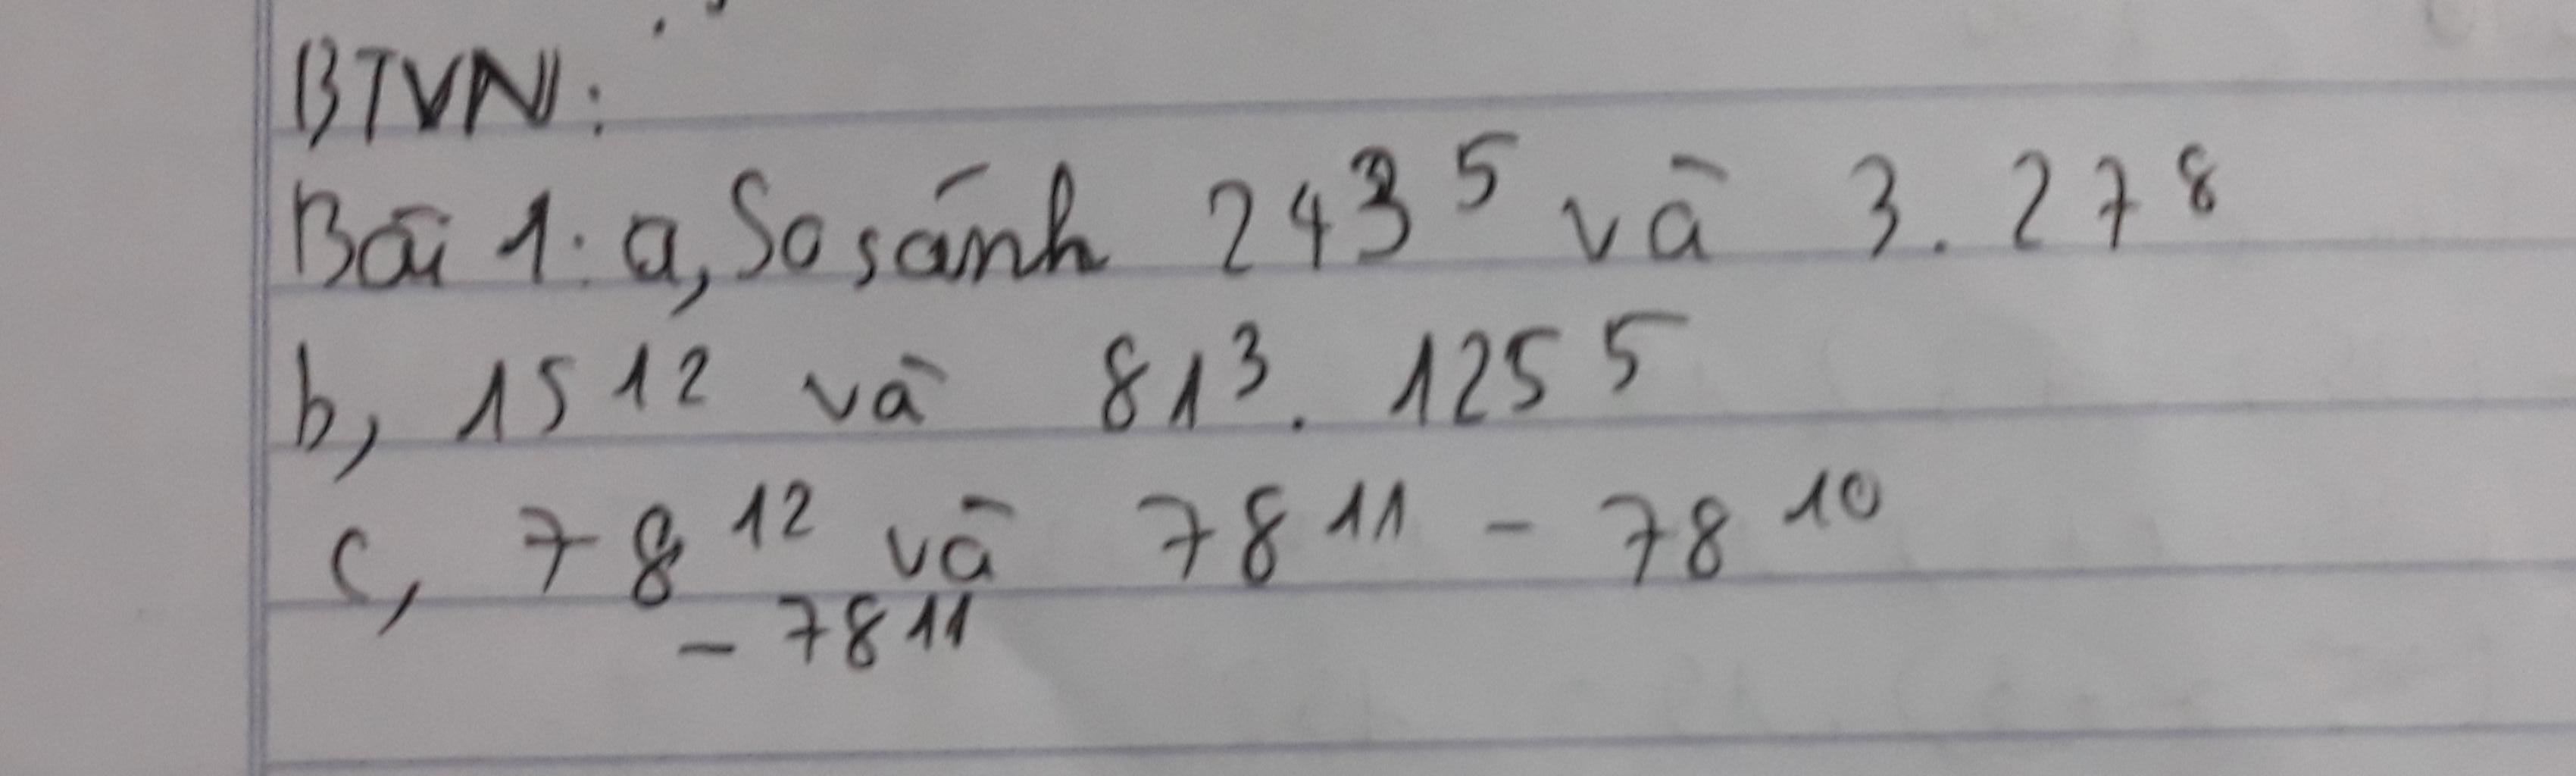 BTVN:
Bài 1: a, So sánh 243⁵ và 3. 27⁸
b, 15¹² và 81³. 125⁵
c, 78¹² và 78¹¹ - 78¹⁰
- 78¹¹